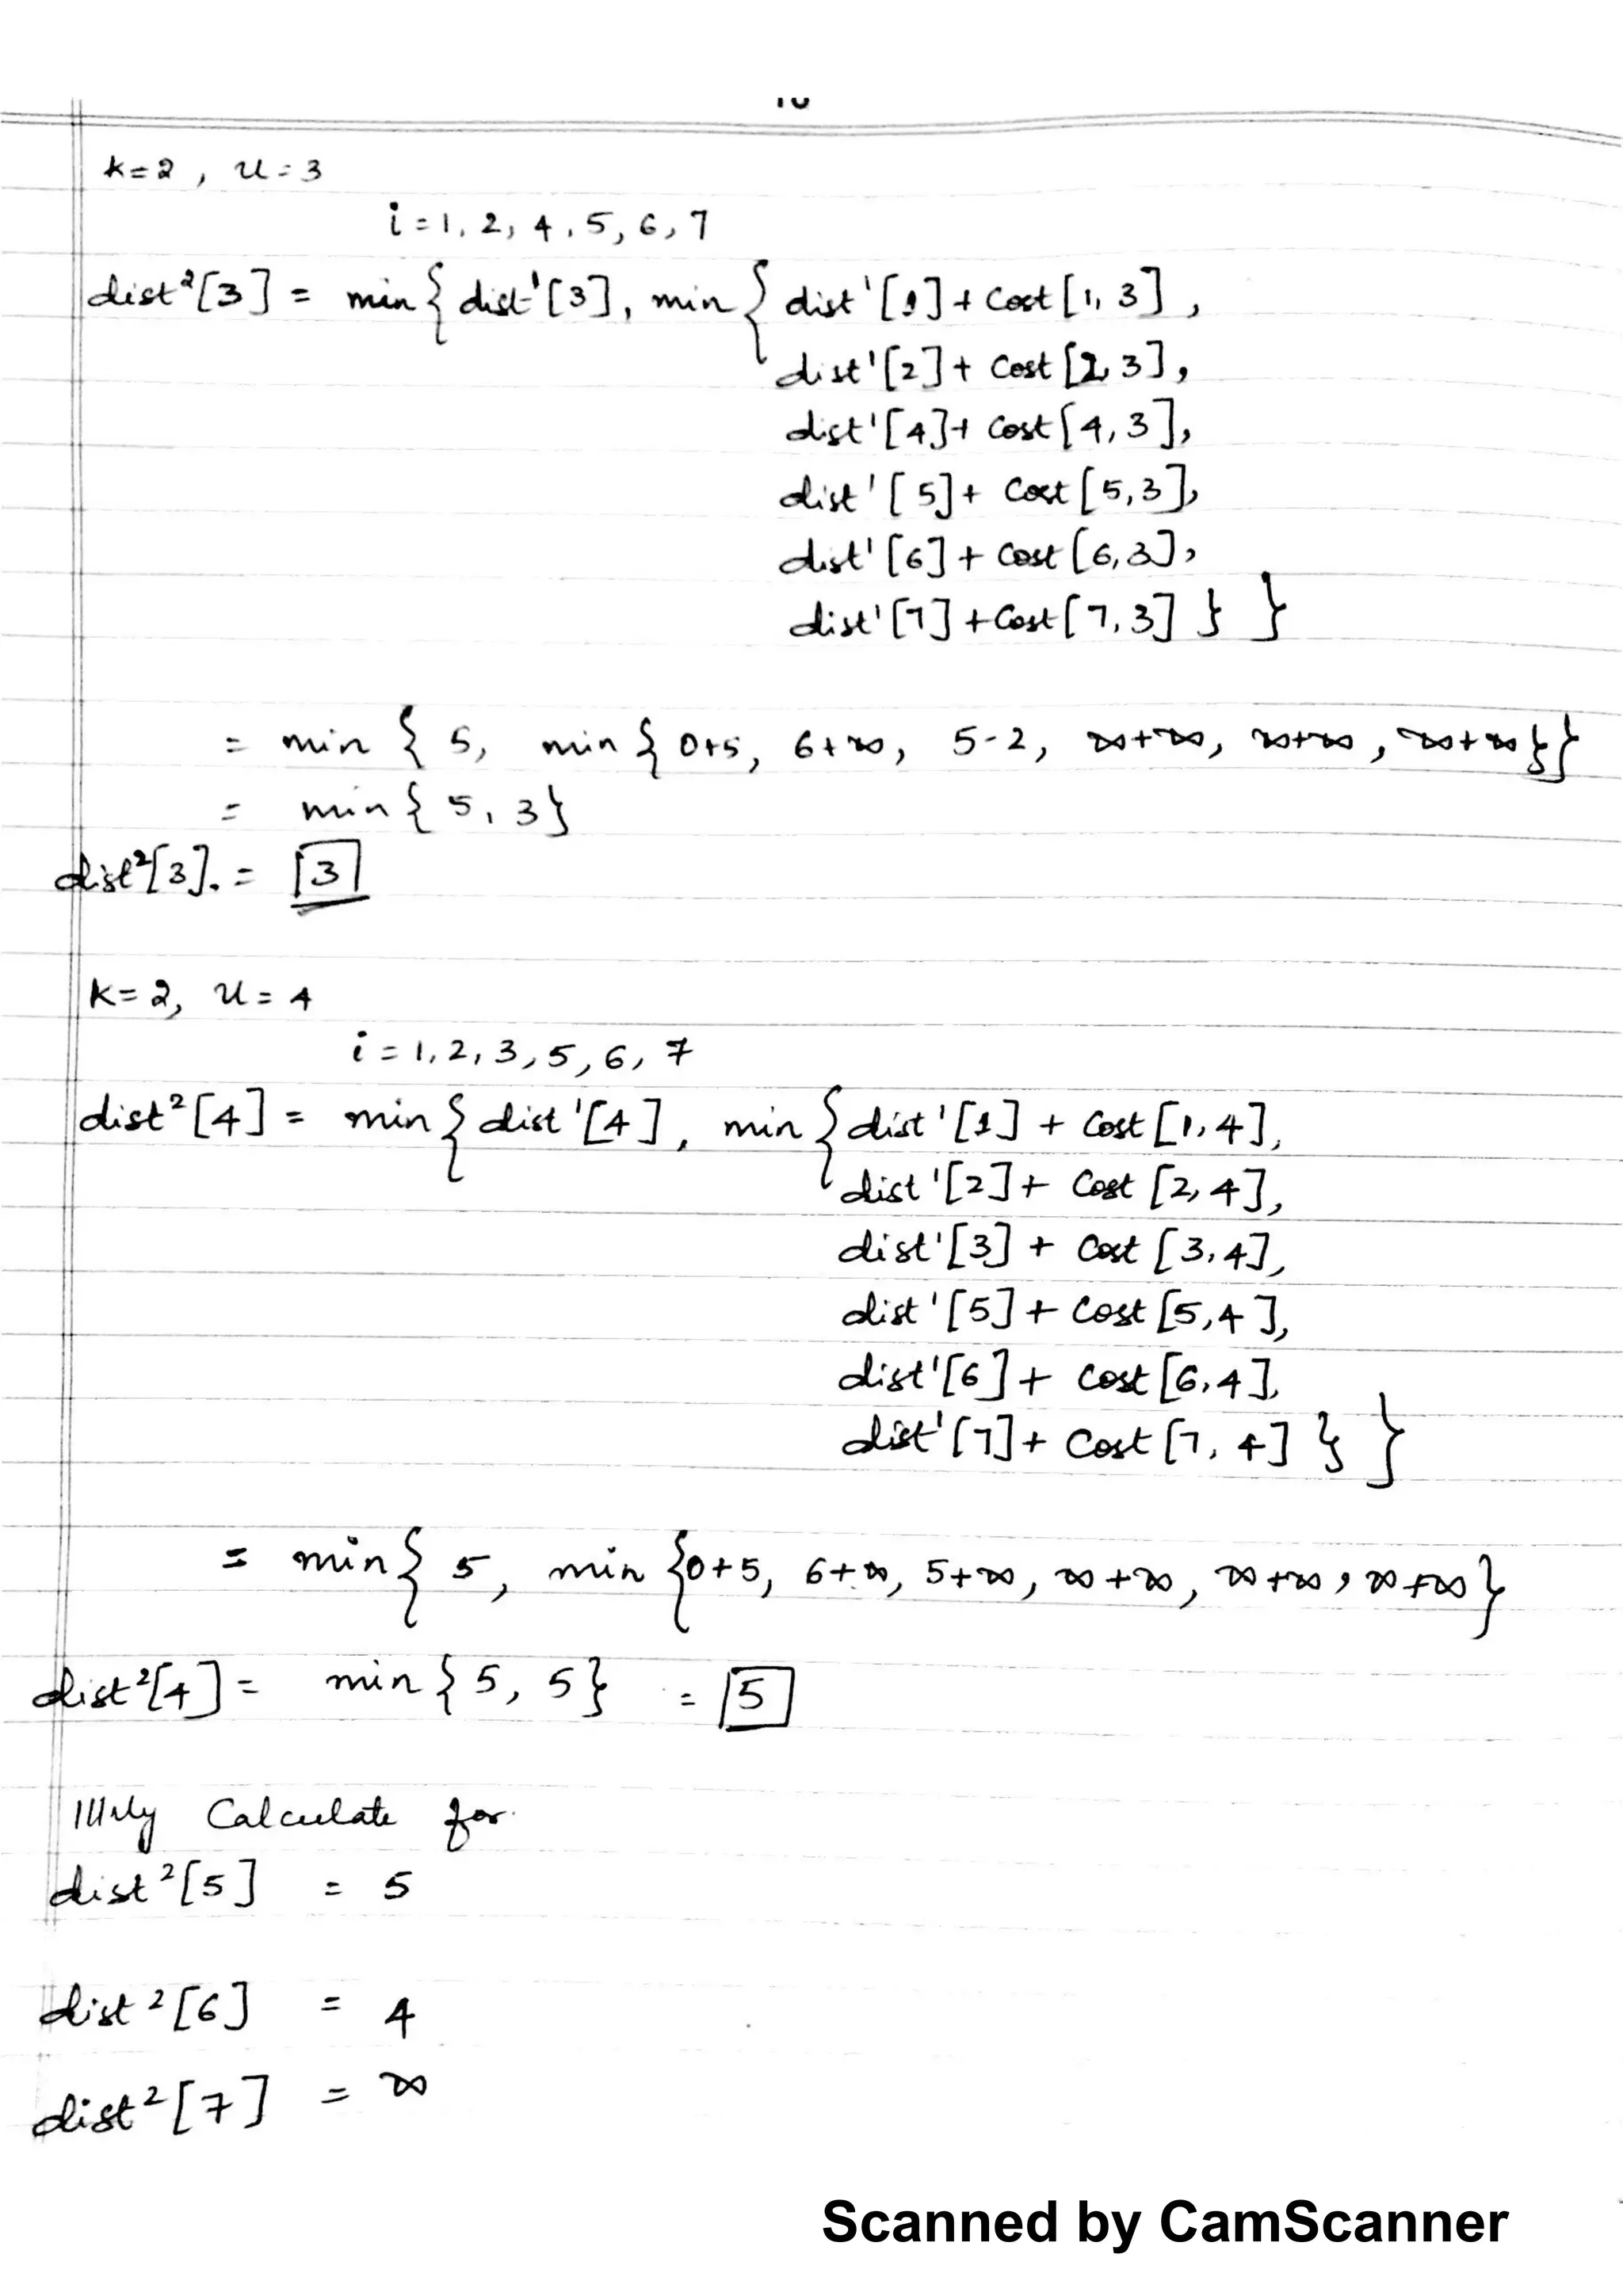 k=2, u=3
i=1, 2, 4, 5, 6, 7
dist²[3] = min{ dist¹[3], min{ dist¹[1] + Cost[1,3],
dist¹[2] + Cost[2,3],
dist¹[4] + Cost[4,3],
dist¹[5] + Cost[5,3],
dist¹[6] + Cost[6,3],
dist¹[7] + Cost[7,3] } }
= min { 5, min{ 0+5, 6+∞, 5-2, ∞+∞, ∞+∞, ∞+∞ }}
= min{ 5, 3}
dist²[3]. = 3
K=2, u=4
i=1, 2, 3, 5, 6, 7
dist²[4] = min{ dist¹[4], min{ dist¹[1] + Cost[1,4],
dist¹[2] + Cost[2,4],
dist¹[3] + Cost[3,4],
dist¹[5] + Cost[5,4],
dist¹[6] + Cost[6,4],
dist¹[7] + Cost[7,4] } }
= min{ 5, min{0+5, 6+∞, 5+∞, ∞+∞, ∞+∞, ∞+∞}
dist²[4] = min{ 5, 5} = 5
Illrly Calculate for
dist²[5] = 5
dist²[6] = 4
dist²[7] = ∞
Scanned by CamScanner